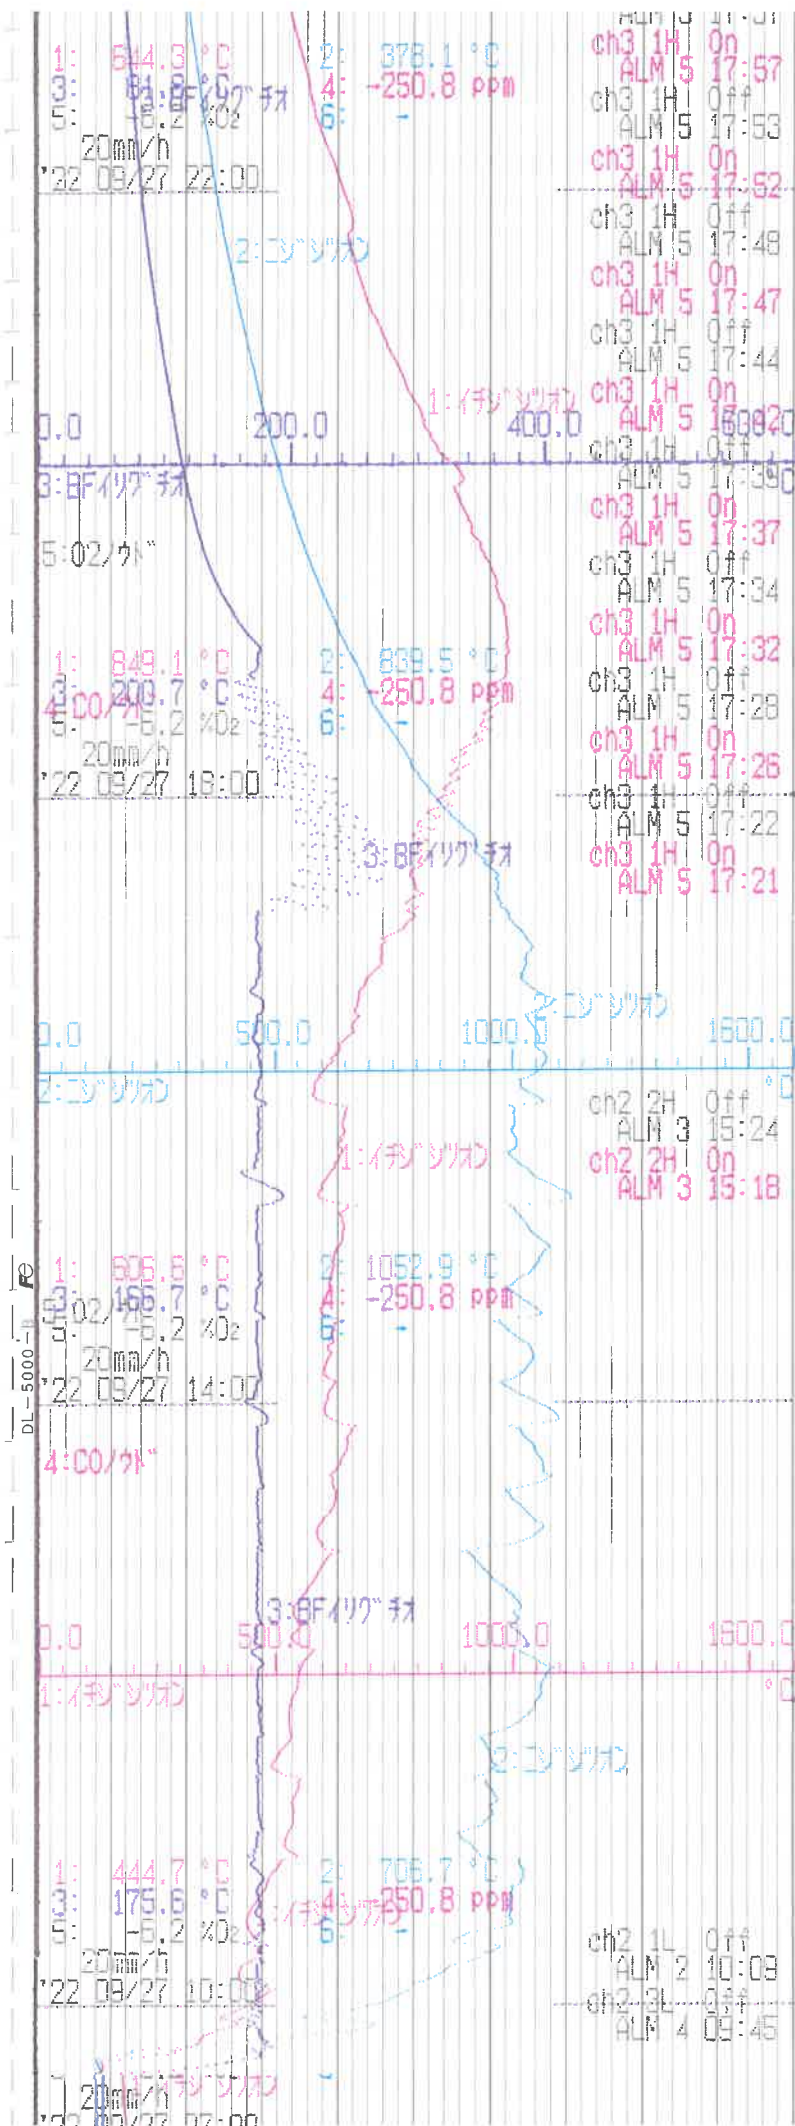 1: 644.3 °C 2: 378.1 °C
3: 81.8 °C 4: -250.8 ppm
5: -6.2 %O₂ 6: -
3:BFイリグチオ
20mm/h
'22 09/27 22:00
ch3 1H On
ALM 5 17:57
ch3 1H Off
ALM 5 17:53
ch3 1H On
ALM 5 17:52
ch3 1H Off
ALM 5 17:48
ch3 1H On
ALM 5 17:47
ch3 1H Off
ALM 5 17:44
ch3 1H On
ALM 5 17:42
ch3 1H Off
ALM 5 17:39
ch3 1H On
ALM 5 17:37
ch3 1H Off
ALM 5 17:34
ch3 1H On
ALM 5 17:32
ch3 1H Off
ALM 5 17:28
ch3 1H On
ALM 5 17:26
ch3 1H Off
ALM 5 17:22
ch3 1H On
ALM 5 17:21
2:ニジシツオン
1:イチジシツオン
0.0 200.0 400.0 600.0
3:BFイリグチオ °C
5:O2ノウド
1: 849.1 °C 2: 839.5 °C
3: 200.7 °C 4: -250.8 ppm
4:COノウド
5: -6.2 %O₂ 6: -
20mm/h
'22 09/27 18:00
3:BFイリグチオ
2:ニジシツオン
0.0 500.0 1000.0 1600.0
2:ニジシツオン °C
ch2 2H Off
ALM 3 15:24
ch2 2H On
ALM 3 15:18
1:イチジシツオン
1: 606.8 °C 2: 1052.9 °C
3: 166.7 °C 4: -250.8 ppm
5: -6.2 %O₂ 6: -
20mm/h
'22 09/27 14:00
DL-5000-B
4:COノウド
3:BFイリグチオ
0.0 500.0 1000.0 1600.0
1:イチジシツオン °C
2:ニジシツオン
1: 444.7 °C 2: 706.7 °C
3: 175.6 °C 4: -250.8 ppm
1:イチジシツオン
5: -6.2 %O₂ 6: -
20mm/h
'22 09/27 10:00
ch2 1L Off
ALM 2 10:09
Off
ALM 4 09:45
1:イチジシツオン
20mm/h